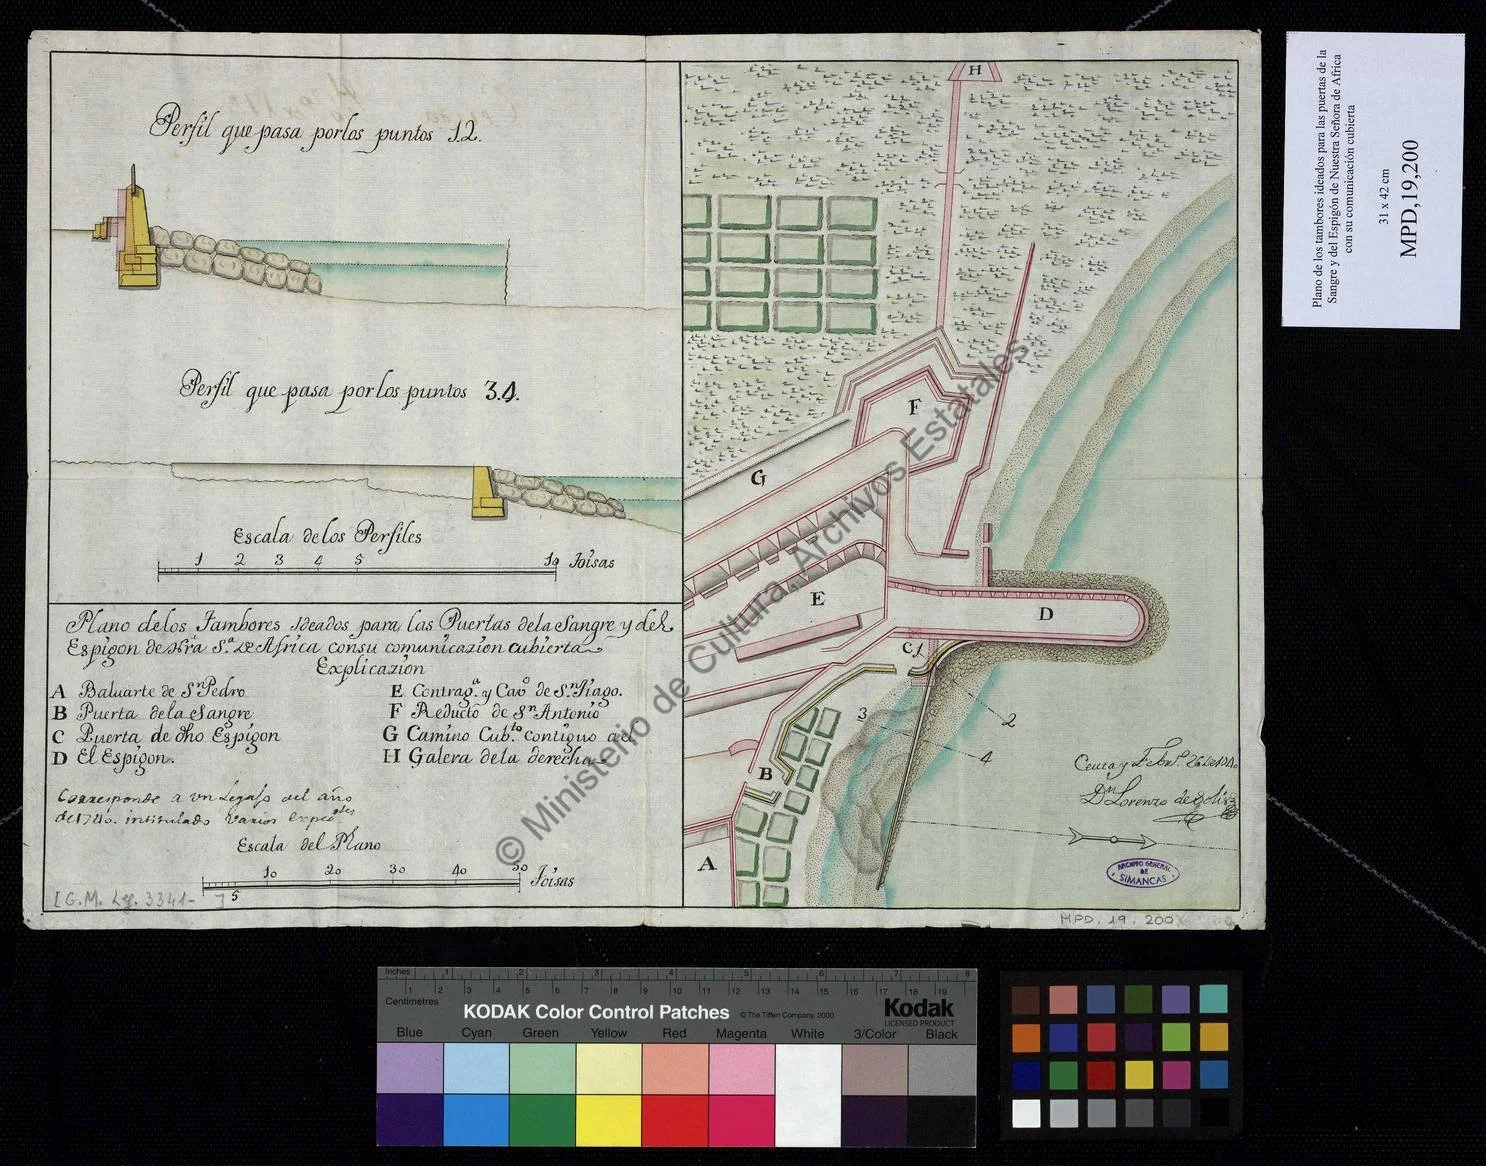 Perfil que pasa por los puntos 1.2.
Perfil que pasa por los puntos 3.4.
Escala de los Perfiles
1 2 3 4 5 10 Toisas
Plano de los Tambores Ideados para las Puertas de la Sangre y del
Espigon de Nrã Sª. de Africa con su comunicazion cubierta
Explicazion
A Baluarte de Sn Pedro
B Puerta de la Sangre
C Puerta de dho Espigon
D El Espigon.
E Contragª. y Cavº de Sn. Tiago.
F Reducto de Sn Antonio
G Camino Cubto contiguo a el
H Galera de la derecha
Corresponde a un Legajo del año
de 1740. intitulado Varios expedtes
Escala del Plano
5 10 20 30 40 50 Toisas
[G.M. Leg. 3341- ]
H
F
G
E
D
C 1
2
3
4
B
A
Ceuta y Febrº. 26 de 1740
Dn Lorenzo de Solis
ARCHIVO GENERAL
DE
SIMANCAS
M.P.D. 19. 200
© Ministerio de Cultura. Archivos Estatales
Plano de los tambores ideados para las puertas de la
Sangre y del Espigón de Nuestra Señora de Africa
con su comunicación cubierta
31 x 42 cm
MPD,19,200
Inches 1 2 3 4 5 6 7 8
Centimetres 1 2 3 4 5 6 7 8 9 10 11 12 13 14 15 16 17 18 19
KODAK Color Control Patches © The Tiffen Company, 2000 Kodak
LICENSED PRODUCT
Blue Cyan Green Yellow Red Magenta White 3/Color Black